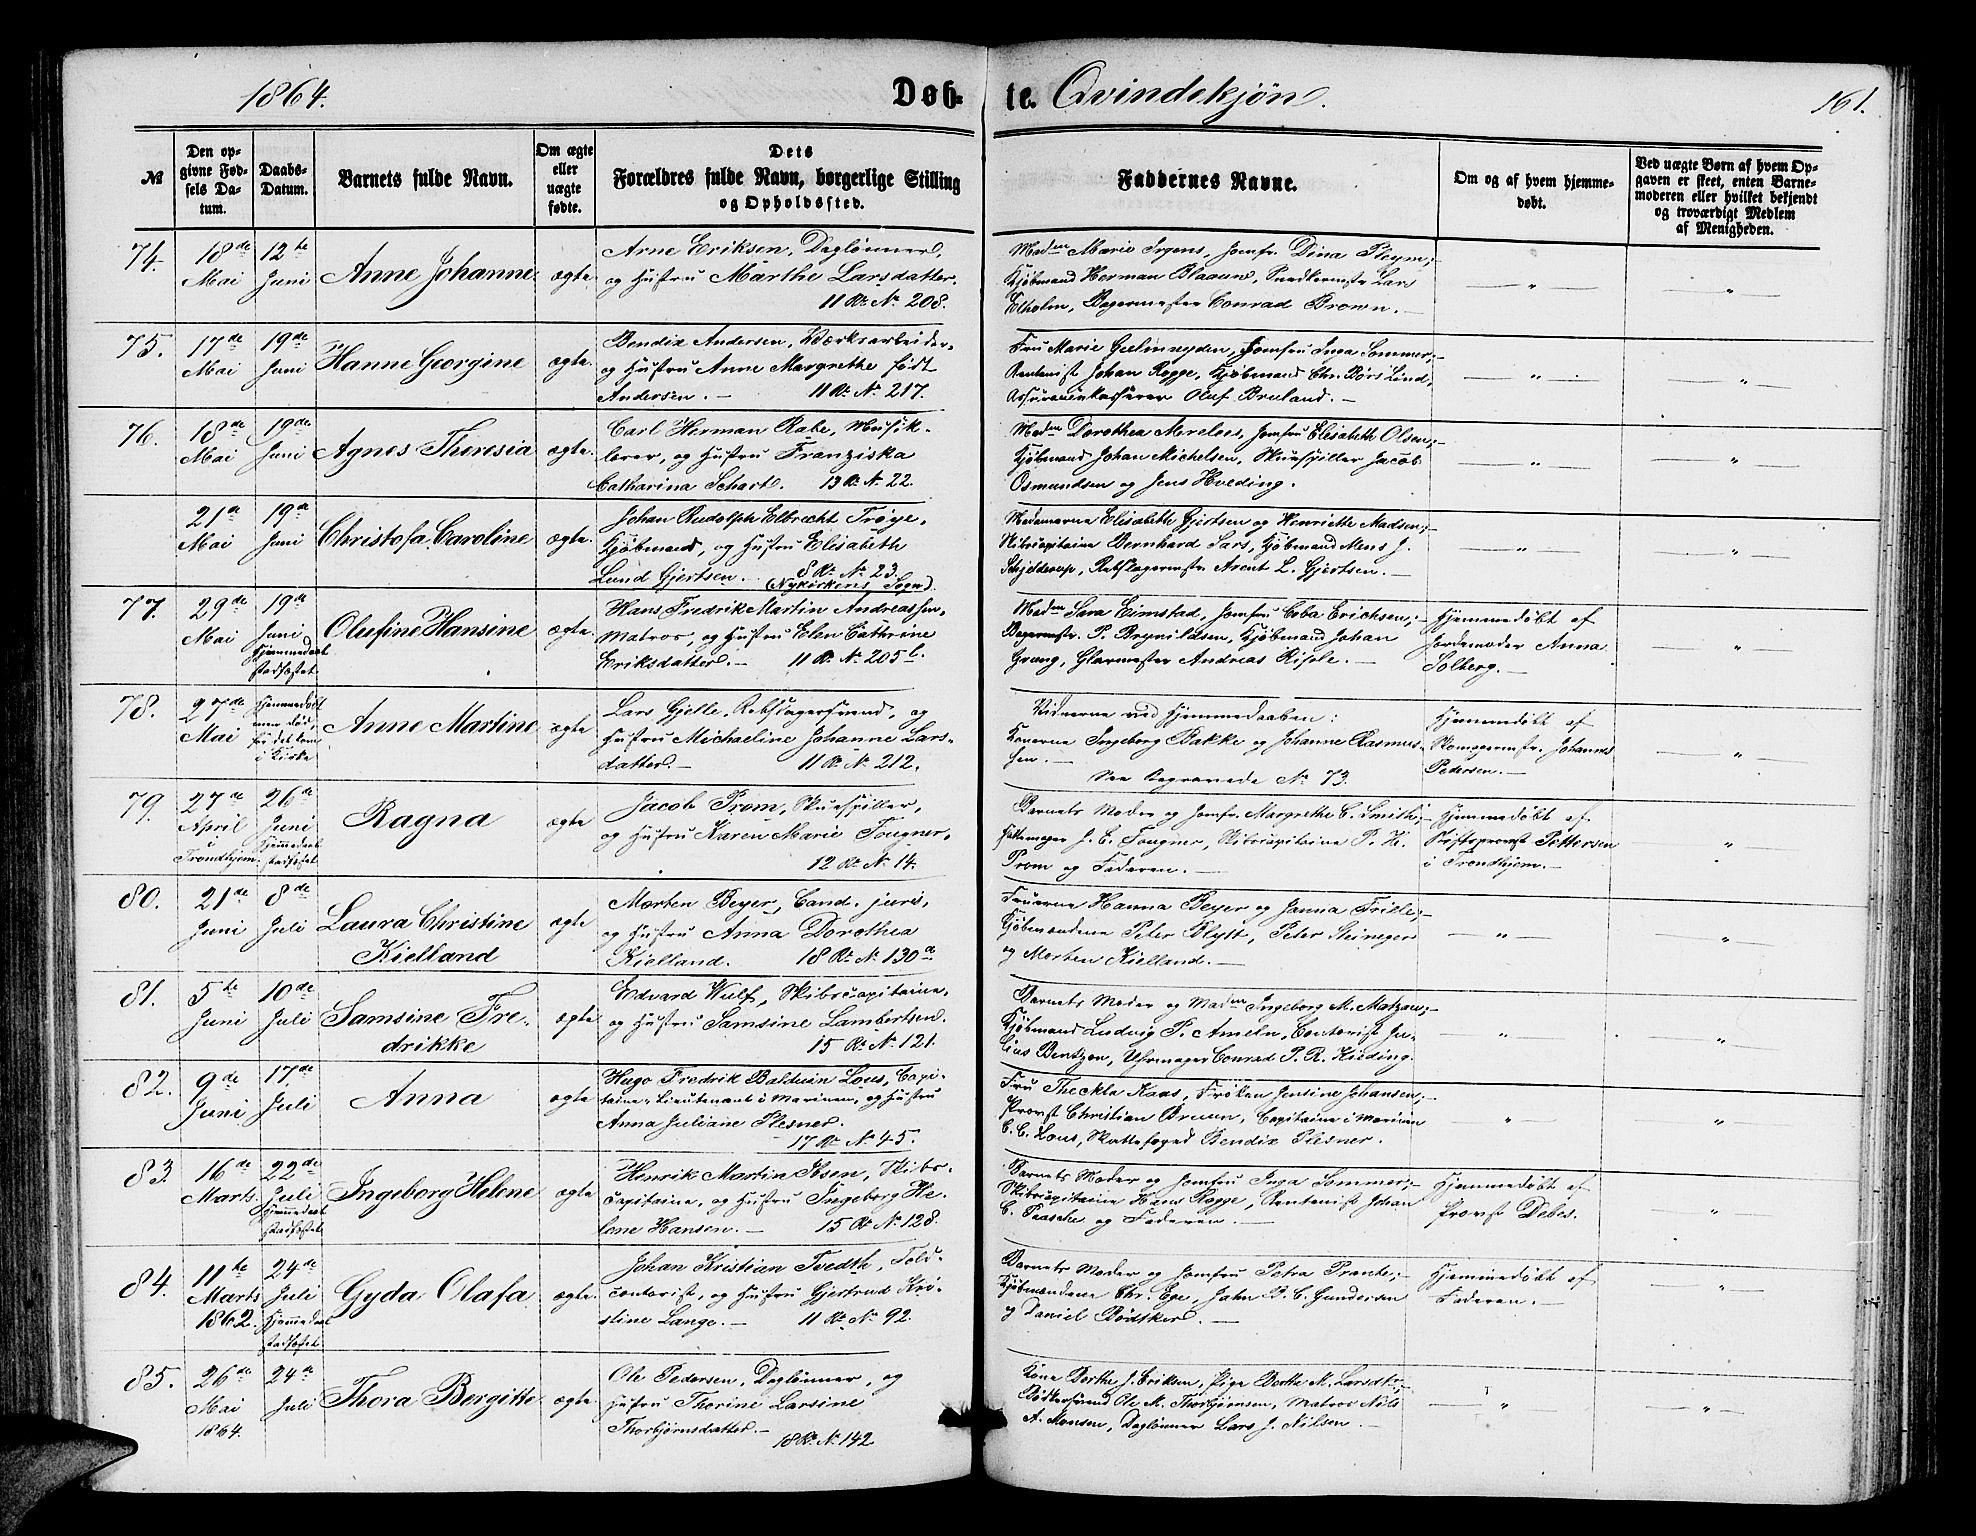 1864.
Døb-
te. Qvindekjøn.
161.
№
Den op-
givne Fød-
sels Da-
tum.
Daabs-
Datum.
Barnets fulde Navn.
Om ægte
eller
uægte
fødte.
Dets
Forældres fulde Navn, borgerlige Stilling
og Opholdssted.
Faddernes Navne.
Om og af hvem hjemme-
døbt.
Ved uægte Børn af hvem Op-
gaven er skeet, enten Barne-
moderen eller hvilket bekjendt
og troværdigt Medlem
af Menigheden.
74.
18de
Mai
12te
Juni
Anne Johanne
ægte.
Arne Eriksen, Dagløner,
og Hustru Marthe Larsdatter.
11 R. N. 208.
Madm Marie Irgens, Jomfr. Dina Steym;
Kjøbmand Herman Blaauw, Snedkermstr Lars
Elholm, Bagermester Conrad Brown.
75.
17de
Mai
19de
Juni
Hanne Georgine
ægte.
Bendix Andersen, Værksarbeider
og Hustru Anne Margrethe født
Andersen. 11 R. N. 217.
Fru Marie Geelmuyden, Jomfru Inga Sommer;
Rentenist Johan Rogge, Kjøbmand Chr. Børs Lind,
Assurancekasserer Oluf Bruland.
76.
18de
Mai
19de
Juni
Agnes Theresia
ægte.
Carl Herman Rabe, Musik-
lærer, og Hustru Franziska
Catharina Schart. 13 R. N. 22.
Madm Dorothea Mrelees, Jomfru Elisabeth Olsen;
Kjøbmand Johan Michelsen, Skuespiller Jacob
Osmundsen og Jens Hveding.
21de
Mai
19de
Juni
Christofa Caroline
ægte.
Johan Rudolph Elbrecht Trøye,
Kjøbmand, og Hustru Elisabeth
Lund Gjertsen. 8 R. N. 23.
(Nykirkens Sogn)
Madamerne Elisabeth Gjertsen og Henriette Madsen;
Skibscapitaine Bernhard Sars, Kjøbmand Mens J.
Schjelderup, Rebslagermstr. Arent L. Gjertsen.
77.
29de
Mai
19de
Juni
Hjemmedaab
stadfæstet
Olufine Hansine
ægte.
Hans Fredrik Martin Andreassen,
Matros, og Hustru Elen Cathrine
Eriksdatter. 11 R. N. 205 b.
Madm Sara Eimstad, Jomfru Ebba Erichsen;
Bagermstr. P. Brynildsen, Kjøbmand Johan
Grang, Glarmester Andreas Risøe.
Hjemmedøbt af
Jordemoder Anna
Solberg.
78.
27de
Mai
Hjemmedøbt
men død,
før det kom
i Kirke
Anne Martine
ægte
Lars Gjelle, Rebslagersvend, og
Hustru Michaeline Johanne Lars-
datter. 11 R. N. 212.
Vidnerne ved Hjemmedaaben:
Konerne Ingeborg Bakke og Johanne Rasmus-
sen.
See Begravede N. 73.
Hjemmedøbt af
Skomagermstr. Johannes
Pedersen.
79.
27de
April
i
Trondhjem
26de
Juni
Hjemmedaab
stadfæstet
Ragna
ægte
Jacob Prom, Skuespiller,
og Hustru Karen Marie Tougner.
12 R. N. 14.
Barnets Moder og Jomfr. Margrethe C. Smith;
Hattemager J. E. Tougner, Skibscapitaine P. H.
Prom og Faderen.
Hjemmedøbt af
Stiftsprovst Pettersen
i Trondhjem.
80.
21de
Juni
8de
Juli
Laura Christine
Kielland
ægte
Morten Beyer, Cand. juris,
og Hustru Anna Dorothea
Kielland. 18 R. N. 130 a
Fruerne Hanna Beyer og Janna Frille;
Kjøbmændene Peter Blytt, Peter Steineger
og Morten Kielland.
81.
5te
Juni
10de
Juli
Samsine Fre-
drikke
ægte
Edvard Wulf, Skibscapitaine,
og Hustru Samsine Lambertsen.
15 R. N. 121.
Barnets Moder og Madm Ingeborg M. Matzau;
Kjøbmand Ludvig P. Ameln, Contorist Ju-
lius Bentzon, Uhrmager Conrad P. R. Kieding.
82.
9de
Juni
17de
Juli
Anna
ægte
Hugo Fredrik Balduin Lous, Capi-
taine-Lieutenant i Marinen, og Hustru
Anna Juliane Plesner.
17 R. N. 45.
Fru Theckla Kaas, Frøken Jensine Johansen;
Provst Christian Bruun, Capitaine i Marinen
C. C. Lous, Skattefoged Bendix Plesner.
83.
16de
Marts.
22de
Juli
Hjemmedaab
stadfæstet
Ingeborg Helene
ægte
Henrik Martin Ibsen, Skibs-
capitaine, og Hustru Ingeborg He-
lene Hansen. 15 R. N. 128.
Barnets Moder og Jomfru Inga Sommer;
Skibscapitaine Hans Rogge, Rentenist Johan
C. Paasche og Faderen.
Hjemmedøbt af
Provst Debes.
84.
11te
Marts
1862.
24de
Juli
Hjemmedaab
stadfæstet
Gyda Olafa
ægte.
Johan Kristian Tvedth, Told-
contorist, og Hustru Gjertrud Kri-
stine Lange. 11 R. N. 92.
Barnets Moder og Jomfru Petra Prante;
Kjøbmændene Chr. Ege, Jahn B. C. Gundersen
og Daniel Bødtker.
Hjemmedøbt af
Faderen.
85.
26de
Mai
1864.
24de
Juli
Thora Bergitte
ægte.
Ole Pedersen, Dagløner, og
Hustru Thorine Larsine
Thorbjørnsdatter.
18 R. N. 142
Kone Dorthe J. Eriksen, Pige Berthe M. Larsdtr.,
Bødkersvend Ole M. Thorbjørnsen, Matros Nils
A. Monsen, Dagløner Lars J. Nilsen.